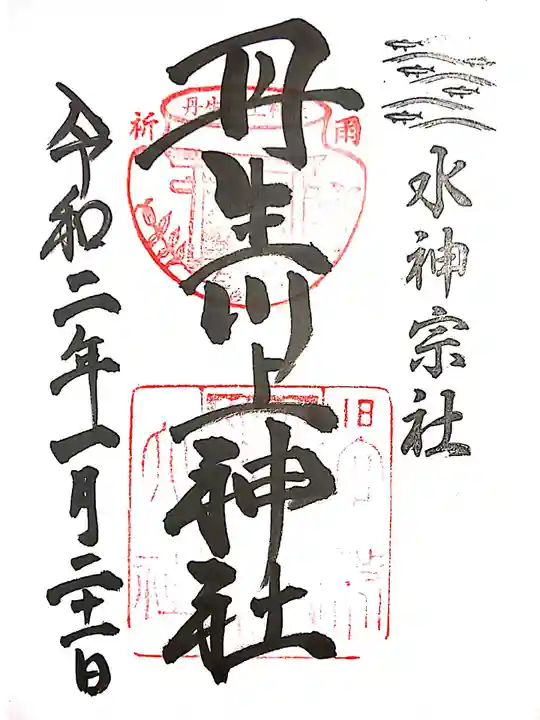 水神宗社
丹生川上神社
令和二年一月二十一日
祈
雨
旧